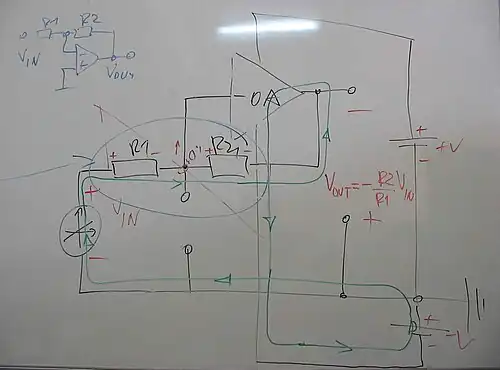 R1 R2
VIN
VOUT
OA
+ R1 - + R2 -
"0"
-
+
VIN
VOUT = - R2/R1 VIN
+
-
+
+V
-
+
-V
-